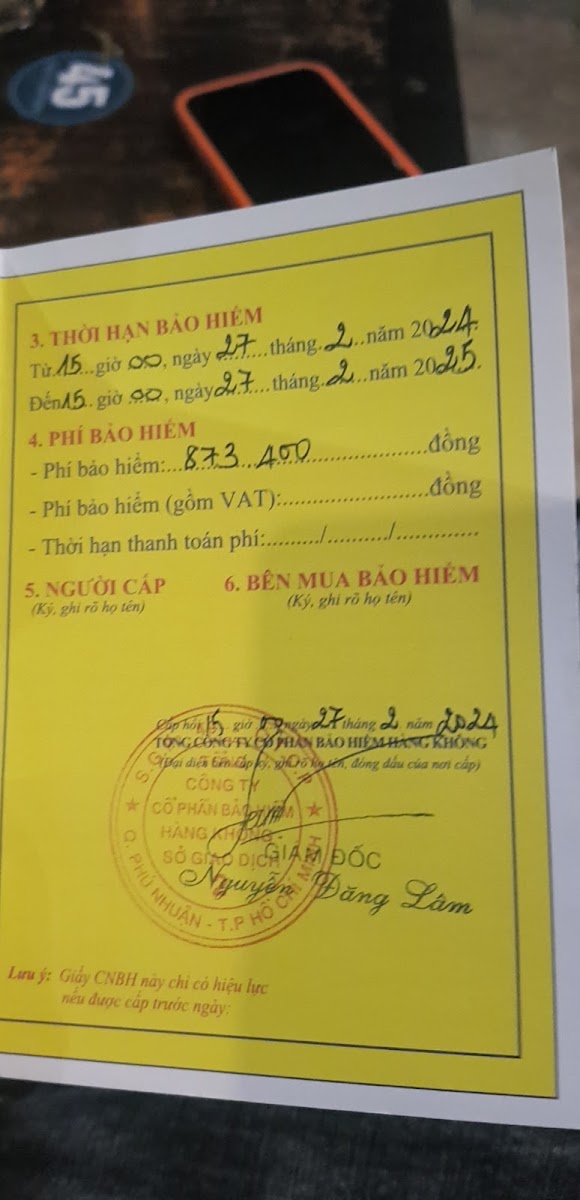 45
3. THỜI HẠN BẢO HIỂM
Từ 15 giờ 00, ngày 27 tháng 2 năm 2024.
Đến 15 giờ 00, ngày 27 tháng 2 năm 2025.
4. PHÍ BẢO HIỂM
- Phí bảo hiểm: 873.400 đồng
- Phí bảo hiểm (gồm VAT): đồng
- Thời hạn thanh toán phí: / /
5. NGƯỜI CẤP
6. BÊN MUA BẢO HIỂM
(Ký, ghi rõ họ tên)
(Ký, ghi rõ họ tên)
Cấp hồi 15 giờ 00 ngày 27 tháng 2 năm 2024
TỔNG CÔNG TY CỔ PHẦN BẢO HIỂM HÀNG KHÔNG
(Đại diện bên cấp ký, ghi rõ họ tên, đóng dấu của nơi cấp)
CÔNG TY
CỔ PHẦN BẢO HIỂM
HÀNG KHÔNG -
SỞ GIAO DỊCH
Q. PHÚ NHUẬN - T.P HỒ CHÍ MINH
GIÁM ĐỐC
Nguyễn Đăng Lâm
Lưu ý: Giấy CNBH này chỉ có hiệu lực
nếu được cấp trước ngày: